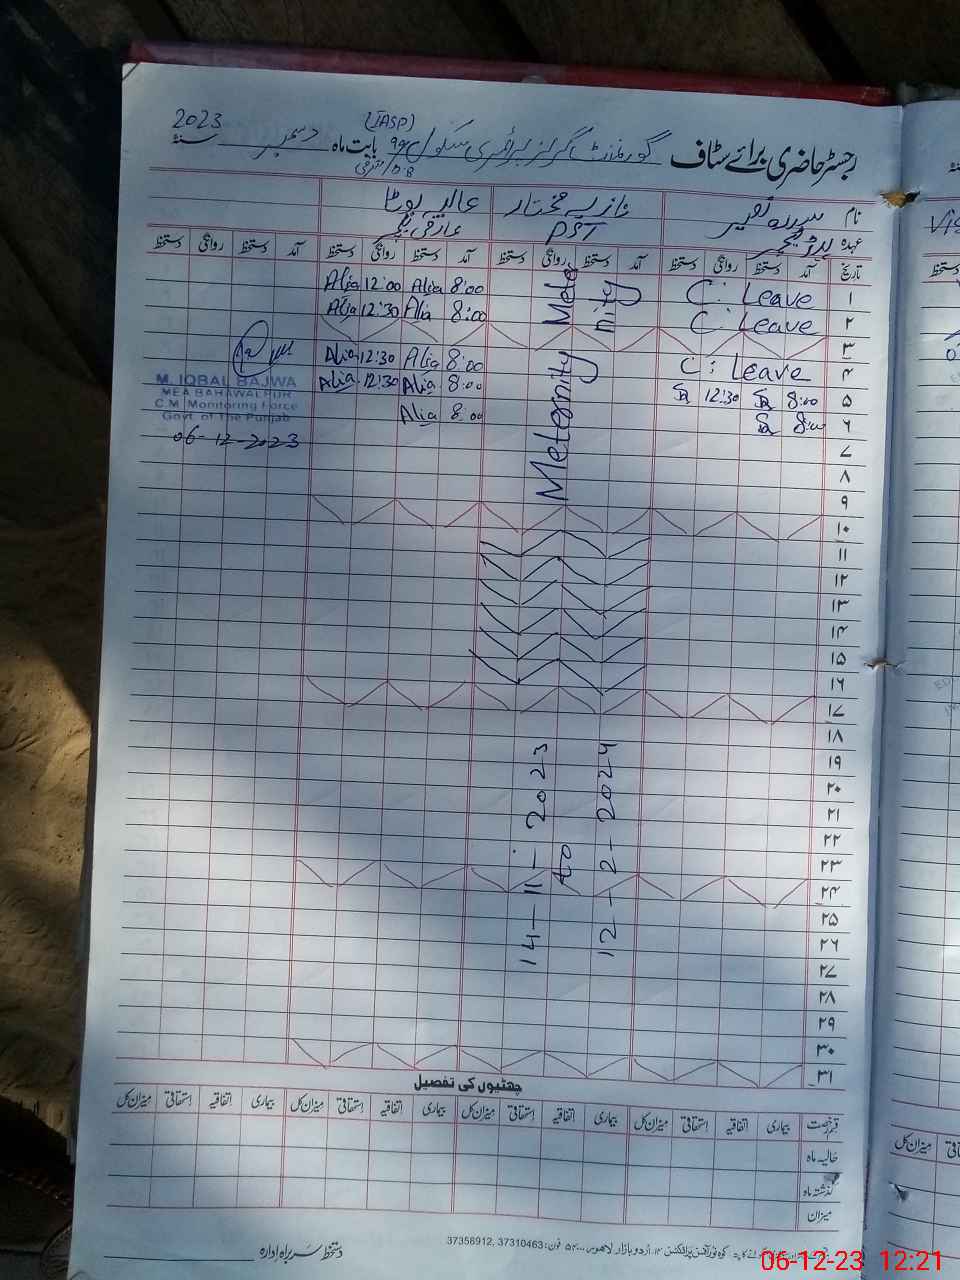 رجسٹر حاضری برائے سٹاف گورنمنٹ گرلز پرائمری سکول بابت ماہ دسمبر 2023 سنہ
(JASP)
نام نازیہ مختار عالیہ بوٹا
عہدہ ہیڈ ٹیچر PST عارضی ٹیچر
تاریخ آمد دستخط روانگی دستخط آمد دستخط روانگی دستخط آمد دستخط روانگی دستخط آمد دستخط روانگی دستخط
۱ C: Leave 8:00 Alia 12:00 Alia
۲ C: Leave 8:00 Alia 12:30 Alia
۳
۴ C: Leave 8:00 Alia 12:30 Alia
۵ 8:00 12:30 8:00 Alia 12:30 Alia
۶ 8:00 8:00 Alia
۷
۸
۹
۱۰
۱۱
۱۲
۱۳
۱۴
۱۵
۱۶
۱۷
۱۸
۱۹
۲۰
۲۱
۲۲
۲۳
۲۴
۲۵
۲۶
۲۷
۲۸
۲۹
۳۰
۳۱
Mete
nity
Meternity
14-11-2023
to
12-2-2024
M. IQBAL BAJWA
MEA BAHAWALPUR
C.M. Monitoring Force
Govt. of The Punjab
06-12-2023
چھٹیوں کی تفصیل
قسم رخصت بیماری اتفاقیہ استحقاقی میزان کل بیماری اتفاقیہ استحقاقی میزان کل بیماری اتفاقیہ استحقاقی میزان کل بیماری اتفاقیہ استحقاقی میزان کل
حالیہ ماہ
گذشتہ ماہ
میزان
دستخط سربراہ ادارہ
اردو بازار لاہور فون: 37310463, 37356912
06-12-23 12:21